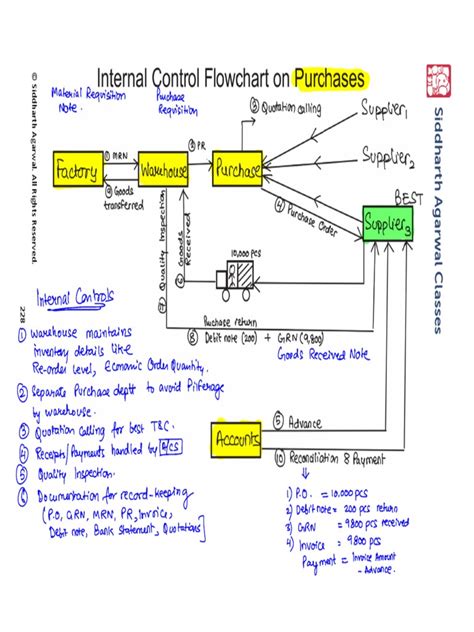 Internal Control Flowchart on Purchases
Material Requisition
Note.
Purchase
Requisition
③ Quotation calling
Supplier1
Supplier2
BEST
Supplier3
① MRN
② PR
Factory
Warehouse
Purchase
⑨ Goods
transferred
④ Purchase Order
⑦ Quality Inspection
⑥ Goods
Received
10,000 pcs
Puchase return
⑧ Debit note (200) + GRN (9,800)
Goods Received Note
Internal Controls
① Warehouse maintains
inventory details like
Re-order Level, Economic Order Quantity.
② Separate Purchase deptt to avoid Pilferage
by warehouse.
③ Quotation calling for best T&C.
④ Receipts/Payments handled by
⑤ Quality Inspection.
⑥ Documentation for record-keeping
(P.O, GRN, MRN, PR, Invoice,
Debit note, Bank Statement, Quotations)
⑤ Advance
Accounts
⑩ Reconciliation & Payment
1) P.O. = 10,000 pcs
2) Debit note = 200 pcs return
3) GRN = 9800 pcs received
4) Invoice = 9,800 pcs
Payment = Invoice Amount
- Advance.
© Siddharth Agarwal. All Rights Reserved.
228
Siddharth Agarwal Classes